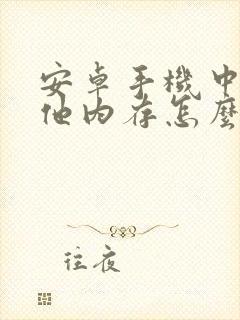 安卓手機中
他內存怎麼
往夜